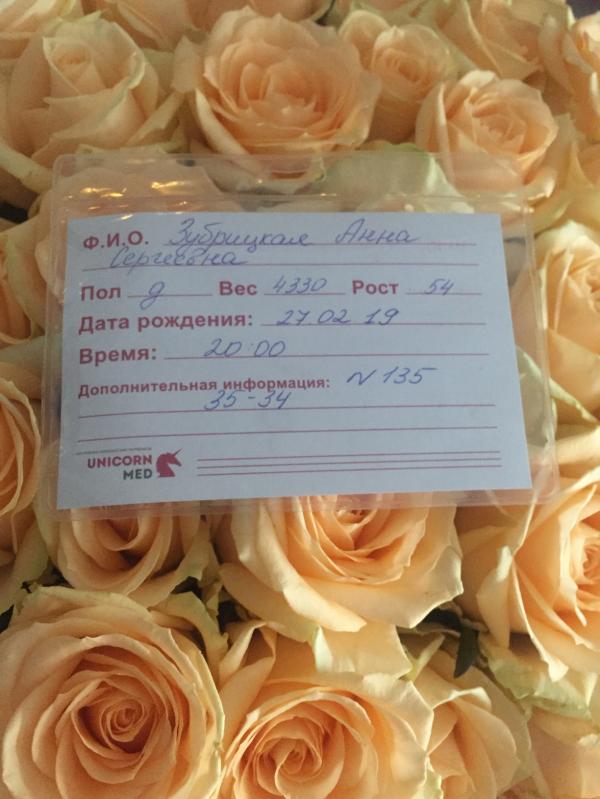 Ф.И.О. Зубрицкая Анна
Сергеевна
Пол д Вес 4330 Рост 54
Дата рождения: 27.02 19
Время: 20:00
Дополнительная информация: N 135
35-34
UNICORN
MED